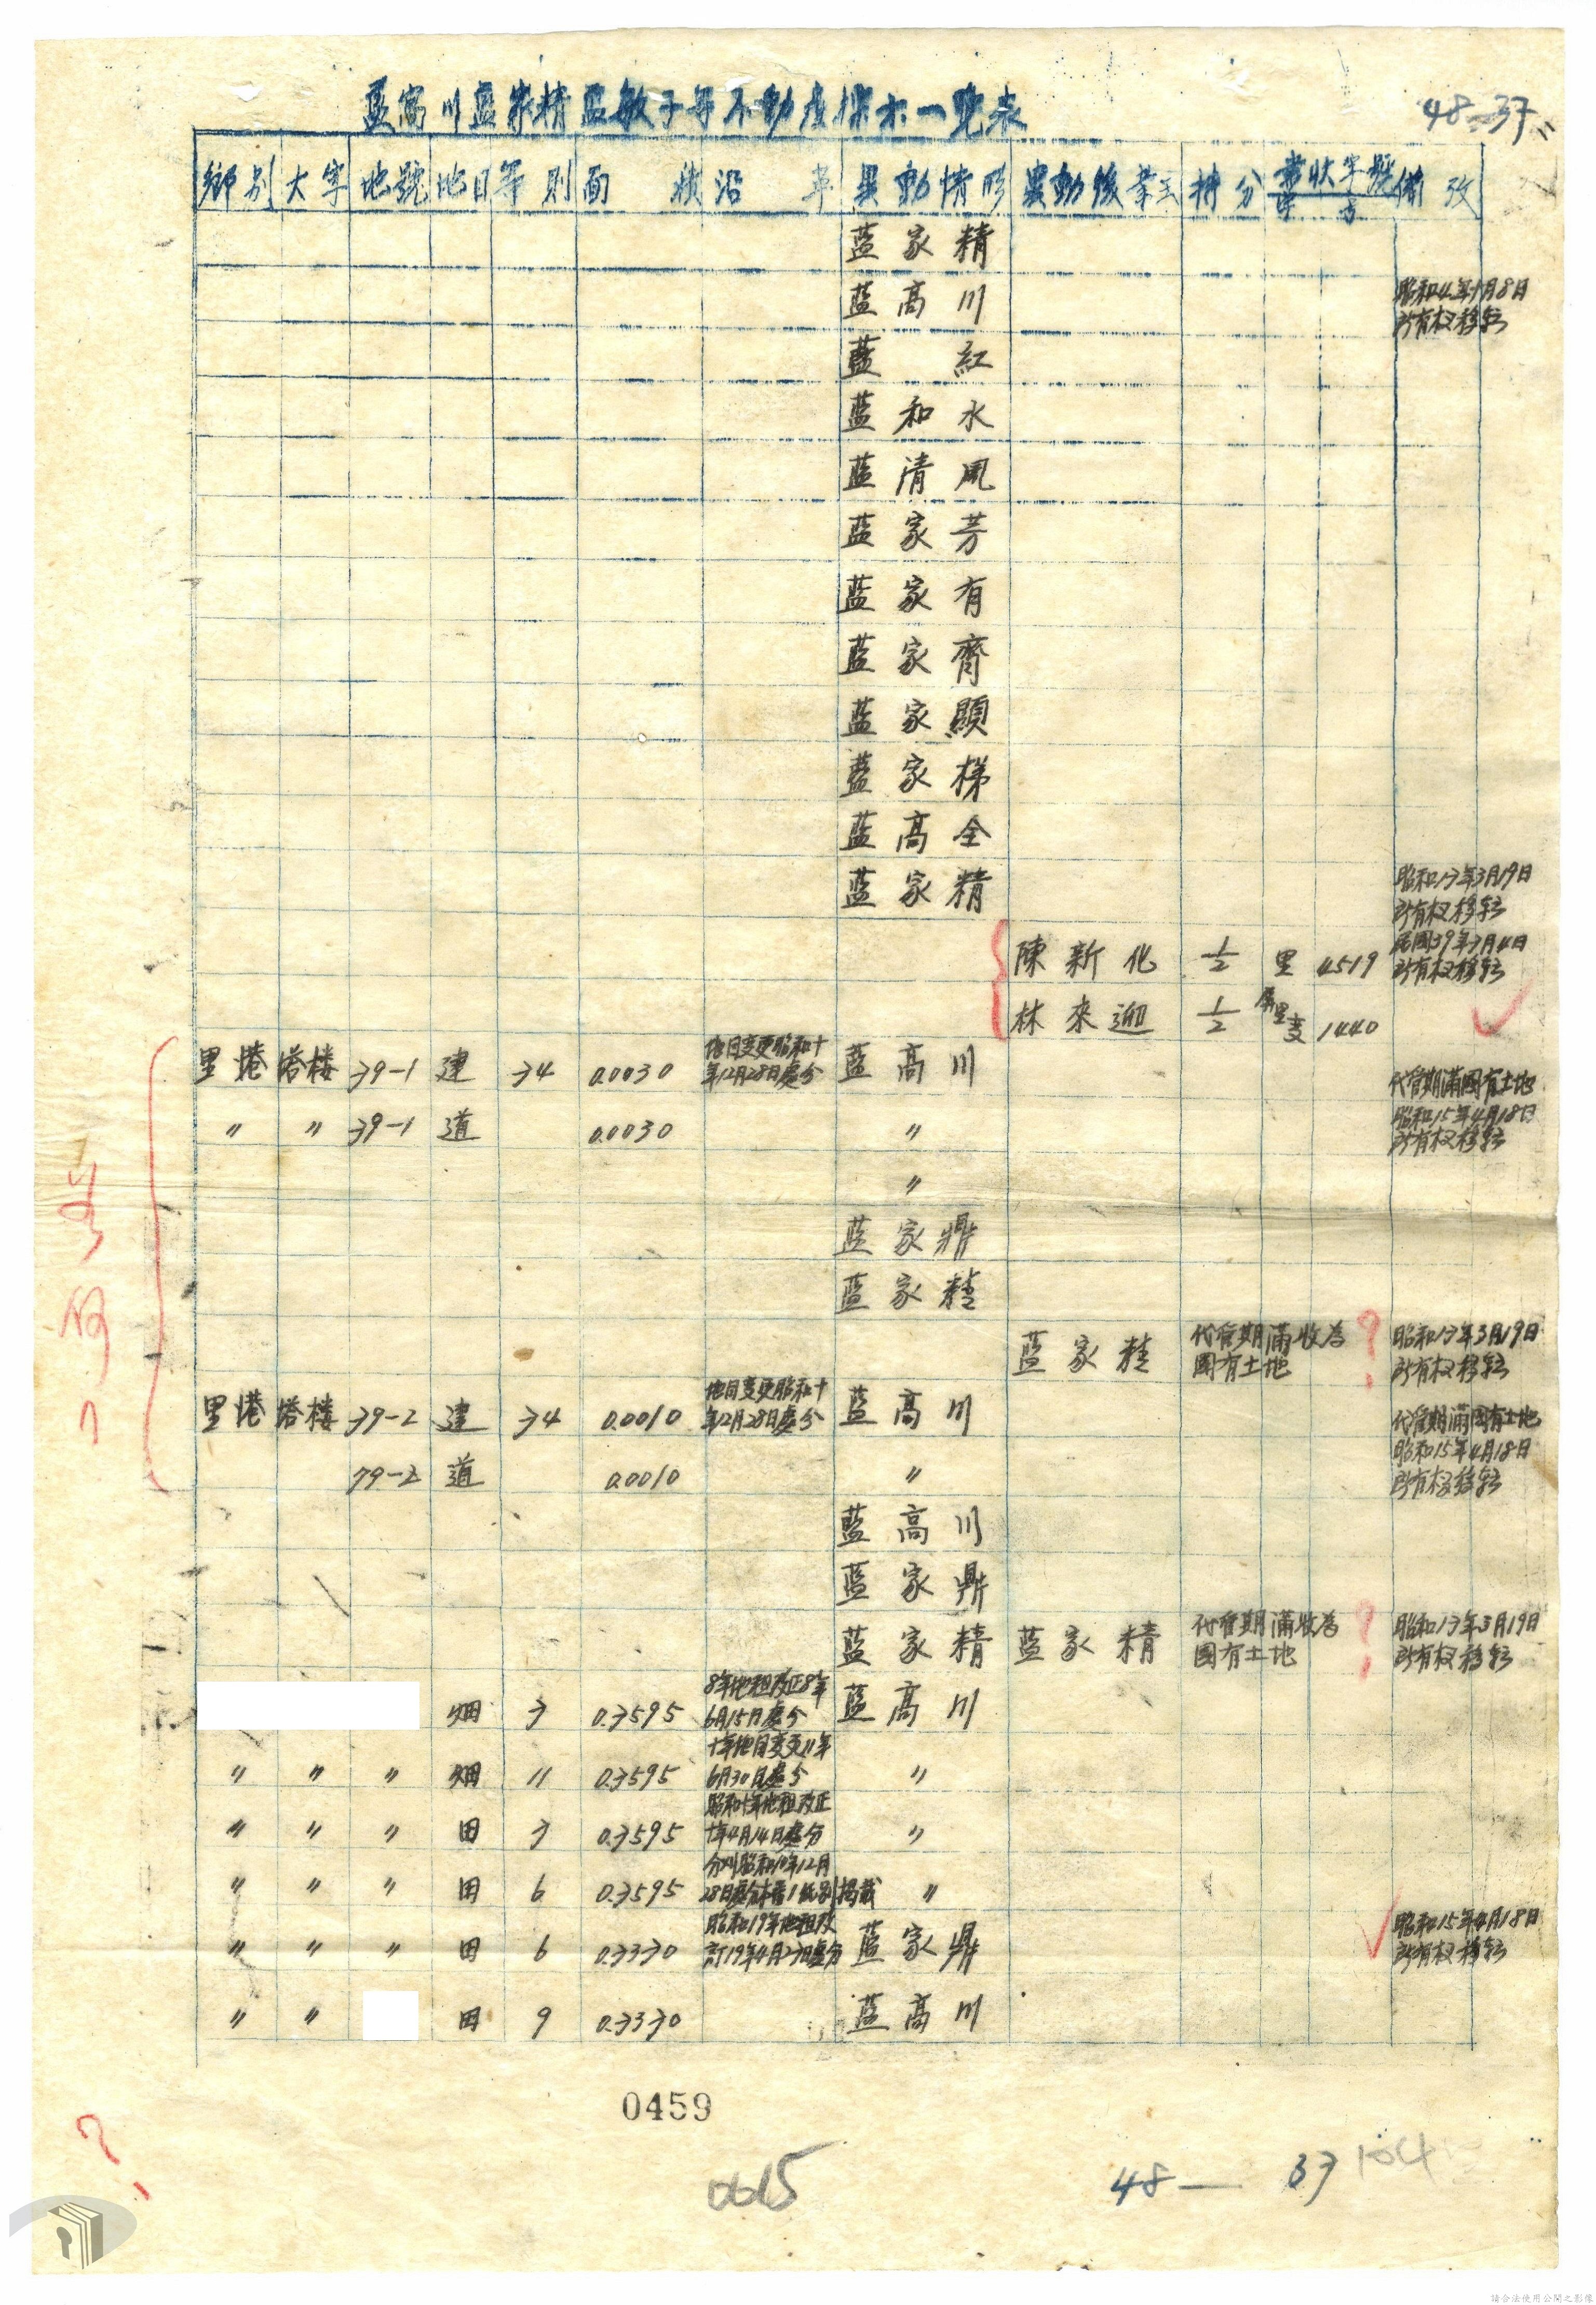 藍高川藍家精藍敏子等不動產標示一覽表
48-37
鄉別 大字 地號 地目 等則 面積 沿革 異動情形 異動後業主 持分 書狀字號 備攷
藍家精
藍高川 昭和4年1月8日
所有权移轉
藍 紅
藍和水
藍清風
藍家芳
藍家有
藍家齊
藍家顯
藍家梯
藍高全
藍家精 昭和17年3月19日
所有权移轉
陳新化 1/2 里 4519 民國39年7月4日
所有权移轉
林來迎 1/2 屏里变 1440
里港 塔楼 79-1 建 74 0.0030 地目变更昭和十
年12月28日處分 藍高川 代管期滿國有土地
〃 〃 79-1 道 0.0030 〃 昭和15年4月18日
所有权移轉
〃
藍家鼎
藍家精
藍家精 代管期滿收為
國有土地 ? 昭和17年3月19日
所有权移轉
里港 塔楼 79-2 建 74 0.0010 地目变更昭和十
年12月28日處分 藍高川 代管期滿國有土地
79-2 道 0.0010 〃 昭和15年4月18日
所有权移轉
藍高川
藍家鼎
藍家精 藍家精 代管期滿收為
國有土地 ? 昭和17年3月19日
所有权移轉
畑 7 0.7595 8年地租改正8年
6月15日處分 藍高川
〃 〃 〃 畑 11 0.7595 十年地目变更11年
6月30日處分 〃
〃 〃 〃 田 7 0.7595 昭和十年地租改正
十年4月14日處分 〃
〃 〃 〃 田 6 0.7595 分刈昭和10年12月
28日處分本番1紙別揭載 〃
〃 〃 〃 田 6 0.7370 昭和19年地租改
訂19年4月27日處分 藍家鼎 昭和15年4月18日
所有权移轉
〃 〃 田 9 0.7370 藍高川
0459
0615
48— 37 104
?
請合法使用公開之影像